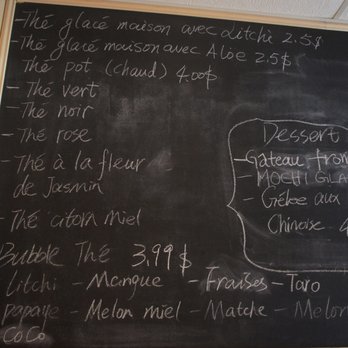 -Thé glacé maison avec Litchi 2.5$
-Thé glacé maison avec Aloe 2.5$
Thé pot (chaud) 4.00$
- Thé vert
- Thé noir
- Thé rose
- Thé à la fleur
de Jasmin
- Thé citron miel
Dessert
-Gateau
- MOCHI GLA
- Gélee aux
Chinoise
Bubble Thé 3.99 $
Litchi - Mangue - Fraises - Taro
papaye - Melon miel - Matche - Melon
CoCo